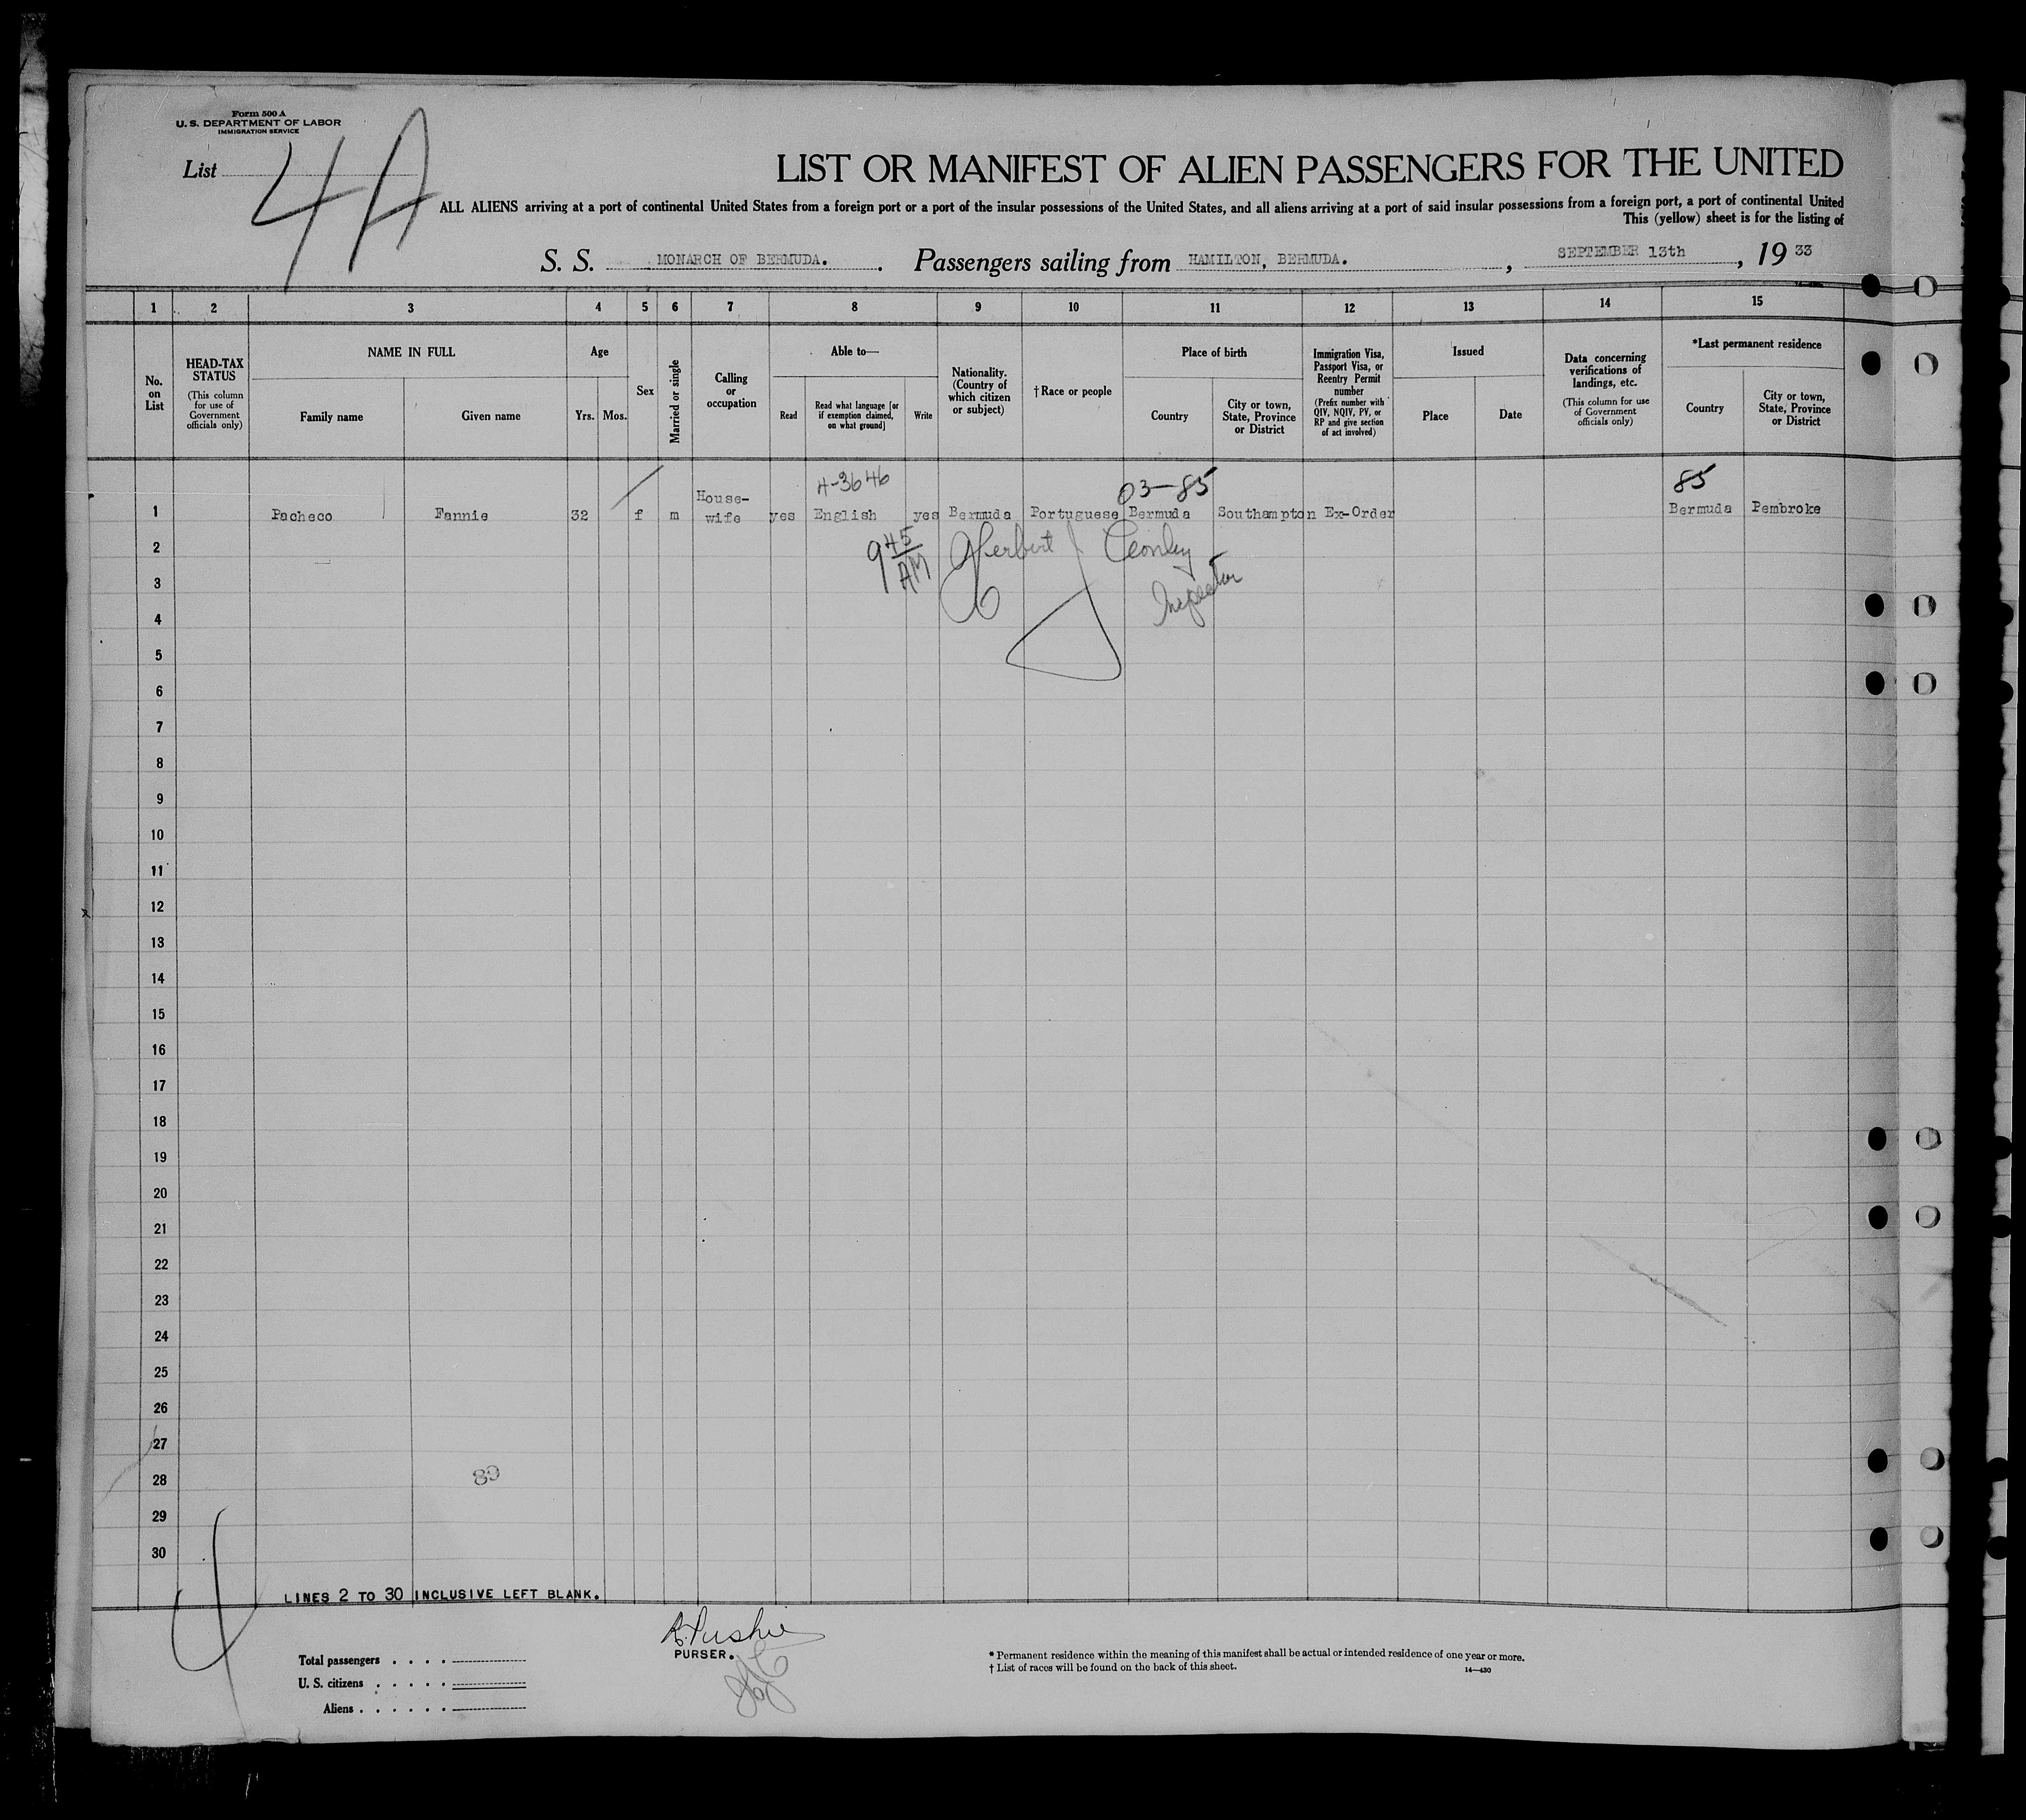 Form 500 A
U. S. DEPARTMENT OF LABOR
IMMIGRATION SERVICE
List 4A
LIST OR MANIFEST OF ALIEN PASSENGERS FOR THE UNITED
ALL ALIENS arriving at a port of continental United States from a foreign port or a port of the insular possessions of the United States, and all aliens arriving at a port of said insular possessions from a foreign port, a port of continental United
This (yellow) sheet is for the listing of
S. S. MONARCH OF BERMUDA. Passengers sailing from HAMILTON, BERMUDA. , SEPTEMBER 13th , 19 33
1 2 3 4 5 6 7 8 9 10 11 12 13 14 15
No. on List
HEAD-TAX STATUS (This column for use of Government officials only)
NAME IN FULL
Family name
Given name
Age
Yrs. Mos.
Sex
Married or single
Calling or occupation
Able to—
Read
Read what language [or if exemption claimed, on what ground]
Write
Nationality. (Country of which citizen or subject)
† Race or people
Place of birth
Country
City or town, State, Province or District
Immigration Visa, Passport Visa, or Reentry Permit number (Prefix number with QIV, NQIV, PV, or RP and give section of act involved)
Issued
Place
Date
Data concerning verifications of landings, etc. (This column for use of Government officials only)
*Last permanent residence
Country
City or town, State, Province or District
4-3646 03-85 85
1 Pacheco Fannie 32 f m House-wife yes English yes Bermuda Portuguese Bermuda Southampton Ex-Order Bermuda Pembroke
9 45 AM Herbert J Conley
Inspector
2
3
4
5
6
7
8
9
10
11
12
13
14
15
16
17
18
19
20
21
22
23
24
25
26
27
28
29
30
80
LINES 2 TO 30 INCLUSIVE LEFT BLANK.
R. Pushie
PURSER.
Total passengers . . . .
U. S. citizens . . . . .
Aliens . . . . . .
* Permanent residence within the meaning of this manifest shall be actual or intended residence of one year or more.
† List of races will be found on the back of this sheet.
14—430